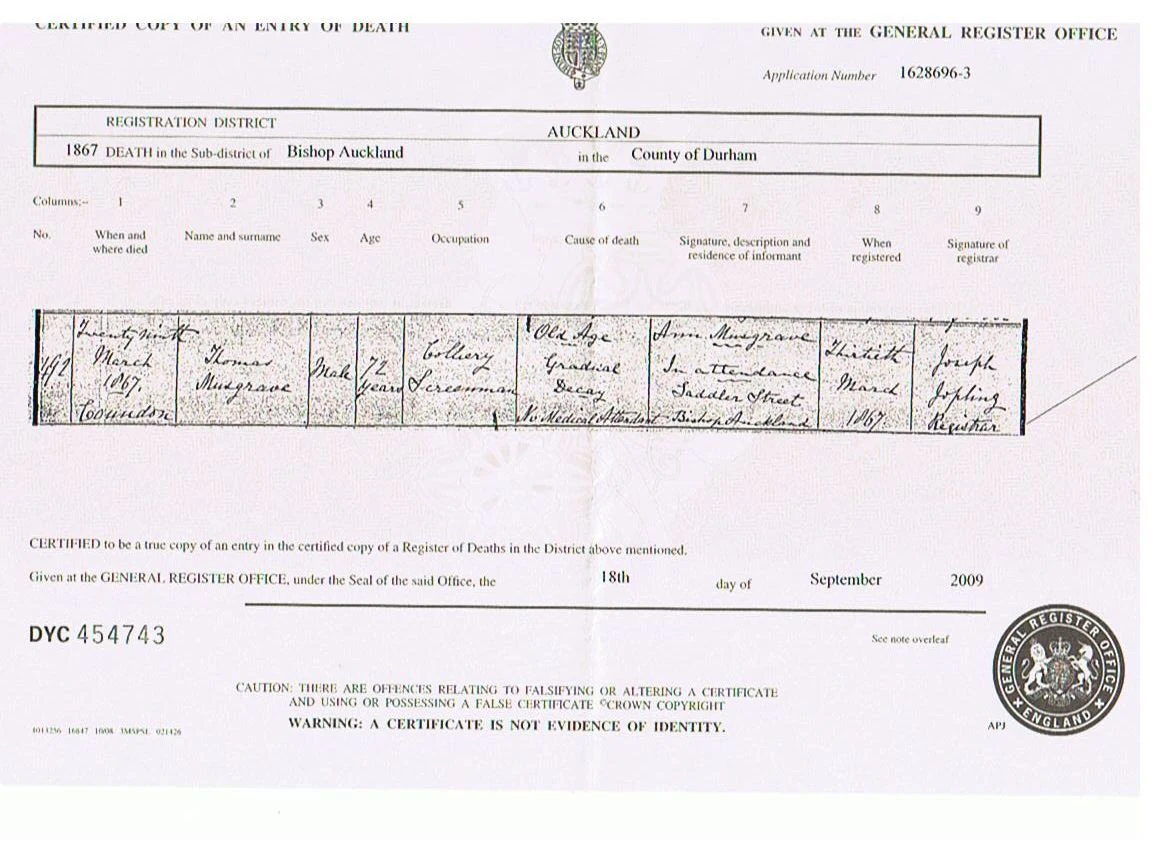 CERTIFIED COPY OF AN ENTRY OF DEATH
GIVEN AT THE GENERAL REGISTER OFFICE
Application Number 1628696-3
REGISTRATION DISTRICT AUCKLAND
1867 DEATH in the Sub-district of Bishop Auckland in the County of Durham
Columns:- 1 2 3 4 5 6 7 8 9
No. When and where died Name and surname Sex Age Occupation Cause of death Signature, description and residence of informant When registered Signature of registrar
492
Twenty Ninth
March
1867.
Coundon
Thomas
Musgrave
Male
72
years
Colliery
Screenman
Old Age
Gradual
Decay
No Medical Attendant
Ann Musgrave
In attendance
Saddler Street
Bishop Auckland
Thirtieth
March
1867.
Joseph
Jopling
Registrar
CERTIFIED to be a true copy of an entry in the certified copy of a Register of Deaths in the District above mentioned.
Given at the GENERAL REGISTER OFFICE, under the Seal of the said Office, the 18th day of September 2009
DYC 454743
See note overleaf
CAUTION: THERE ARE OFFENCES RELATING TO FALSIFYING OR ALTERING A CERTIFICATE
AND USING OR POSSESSING A FALSE CERTIFICATE ©CROWN COPYRIGHT
WARNING: A CERTIFICATE IS NOT EVIDENCE OF IDENTITY.
GENERAL REGISTER OFFICE
ENGLAND
APJ